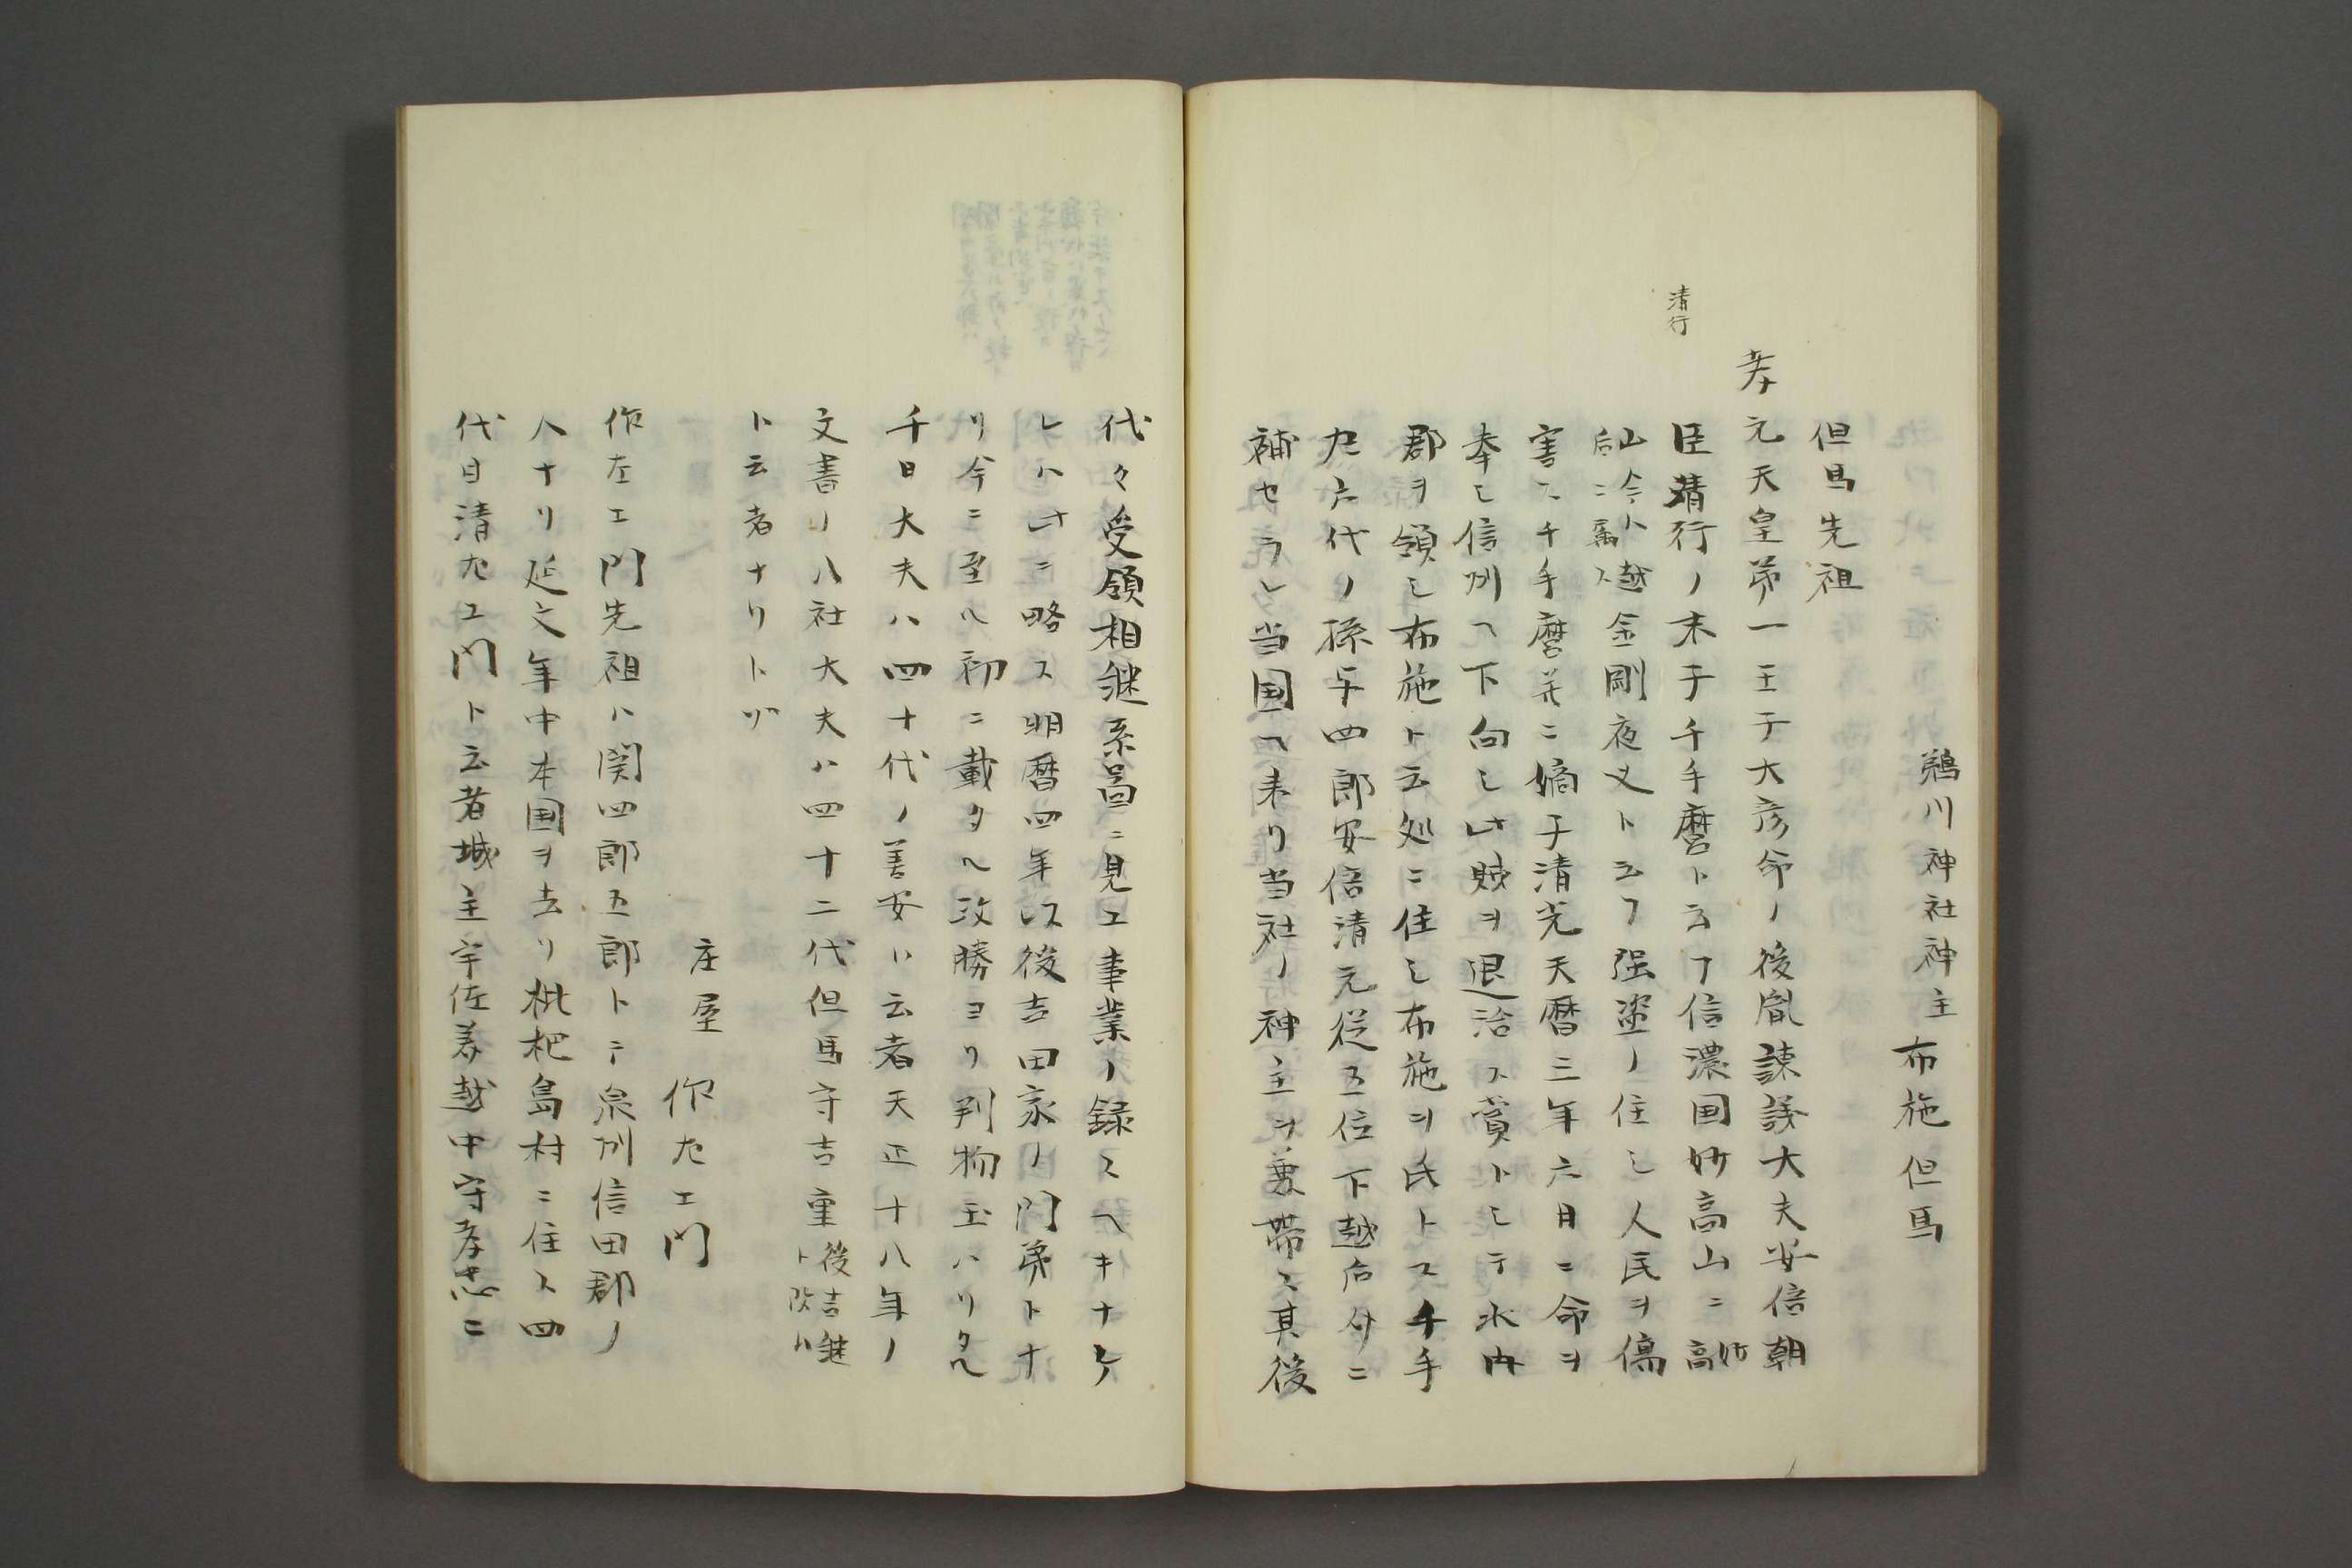 鵜川神社神主布施但馬
但馬先祖
孝元天皇第一王子大彦命ノ後胤諫議大夫安倍朝
清行
臣清行ノ末子千手麿ト云フ信濃国妙高山ニ妙高
山今ハ越后ニ属ス金剛夜叉ト云フ强盗ノ住シ人民ヲ傷
害ス千手麿并ニ嫡子清光天暦三年六月ニ命ヲ
奉シ信州ヘ下向シ此賊ヲ退治ス賞トシテ水内
郡ヲ領シ布施ト云処ニ住シ布施ヲ氏トス千手
ヨリ六代ノ孫与四郎安倍清元従五位下越后守ニ
補セラレ当国ヘ来リ当社ノ神主ヲ兼帯ス其後
代々受領相継系昌ニ見エ事業ノ録スヘキナケ
レハ此ニ略ス明暦四年以後吉田家ノ門弟トナ
リ今ニ至ル初ニ載タル政勝ヨリ判物玉ハリタル
千日大夫ハ四十代ノ善安ト云者天正十八年ノ
文書ノ八社大夫ハ四十二代但馬守吉重後吉継ト改ム
ト云者ナリトゾ
庄屋 作左エ門
作左エ門先祖ハ関四郎五郎トテ泉州信田郡ノ
人ナリ延文年中本国ヲ去リ枇杷島村ニ住ス四
代目清左エ門ト云者城主宇佐美越中守孝忠ニ